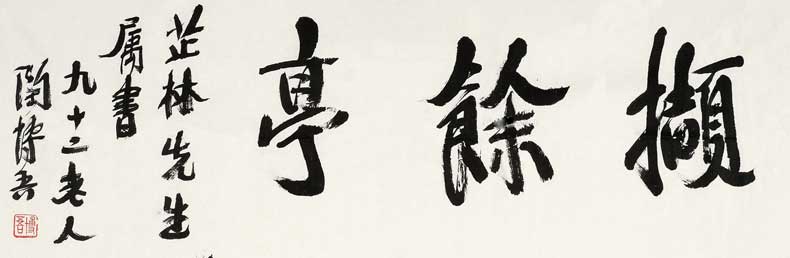 擷餘亭
芷林先生
属書
九十二老人
陶博吾
博吾